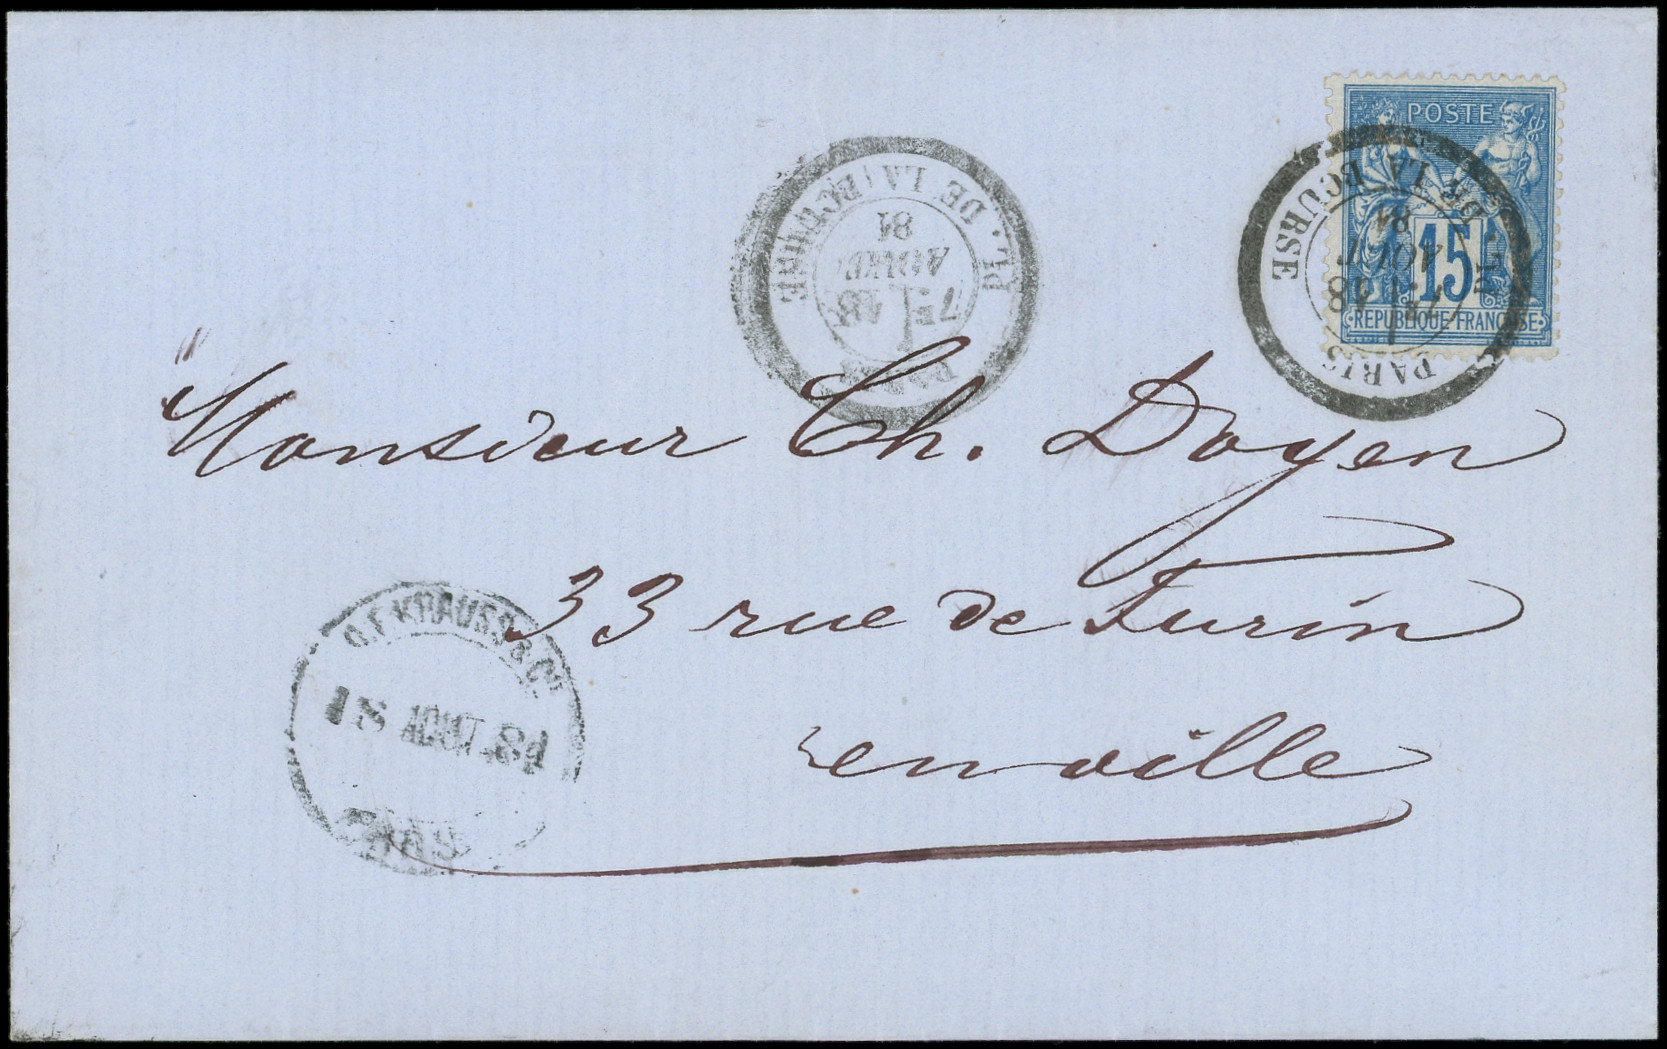 POSTE
15
RÉPUBLIQUE FRANÇAISE
PARIS
PL. DE LA BOURSE
AOUT
81
PL. DE LA BOURSE
AOUT
81
Monsieur Ch. Doyen
33 rue de Turin
en ville
KRAUSS & Cie
18 AOUT 81
PARIS